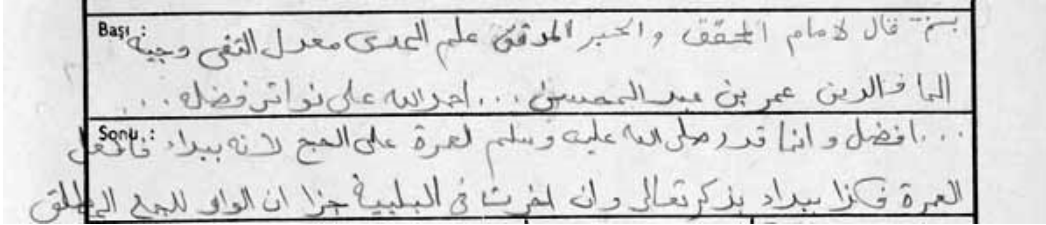 Başı: بسم قال لامام المحقق والحبر المدقق علم الهدى معدل التقى وجيه
الدين عمر بن عبد المحسن ... احمد الله على تواتر فضله ...
Sonu: ... افضل و انما قدر صلى الله عليه وسلم لعمرة على الحج لانه يبداء
العمرة فكذا يبداء بذكر تعالى وان اخرت في البلبية جزا ان الواو للجمع المطلق